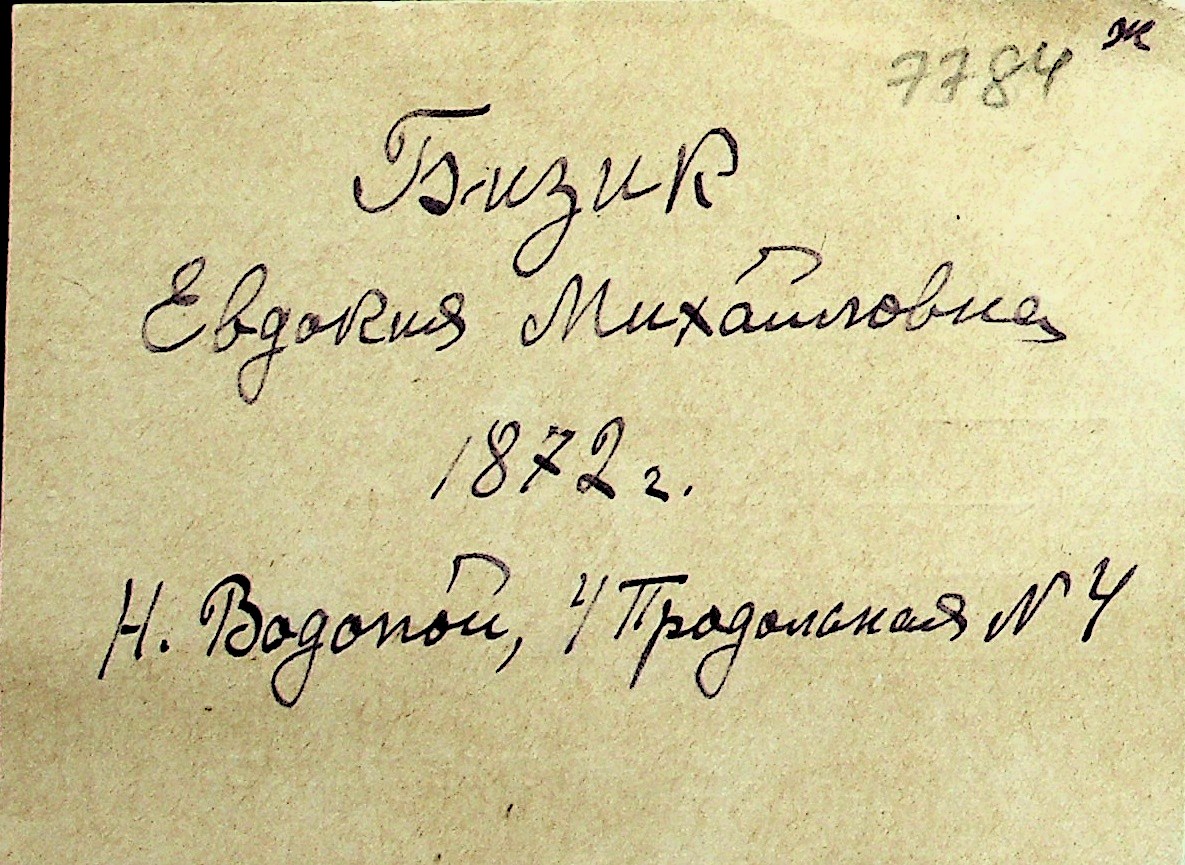 7784 ж
Бизик
Евдокия Михайловна
1872 г.
Н. Водопой, 4 Продольная N 4